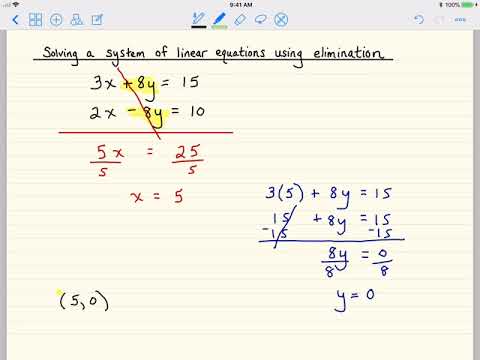 9:41 AM
100%
Solving a system of linear equations using elimination
3x + 8y = 15
2x - 8y = 10
5x = 25
5 5
x = 5
3(5) + 8y = 15
15 + 8y = 15
-15 -15
8y = 0
8 8
y = 0
(5,0)